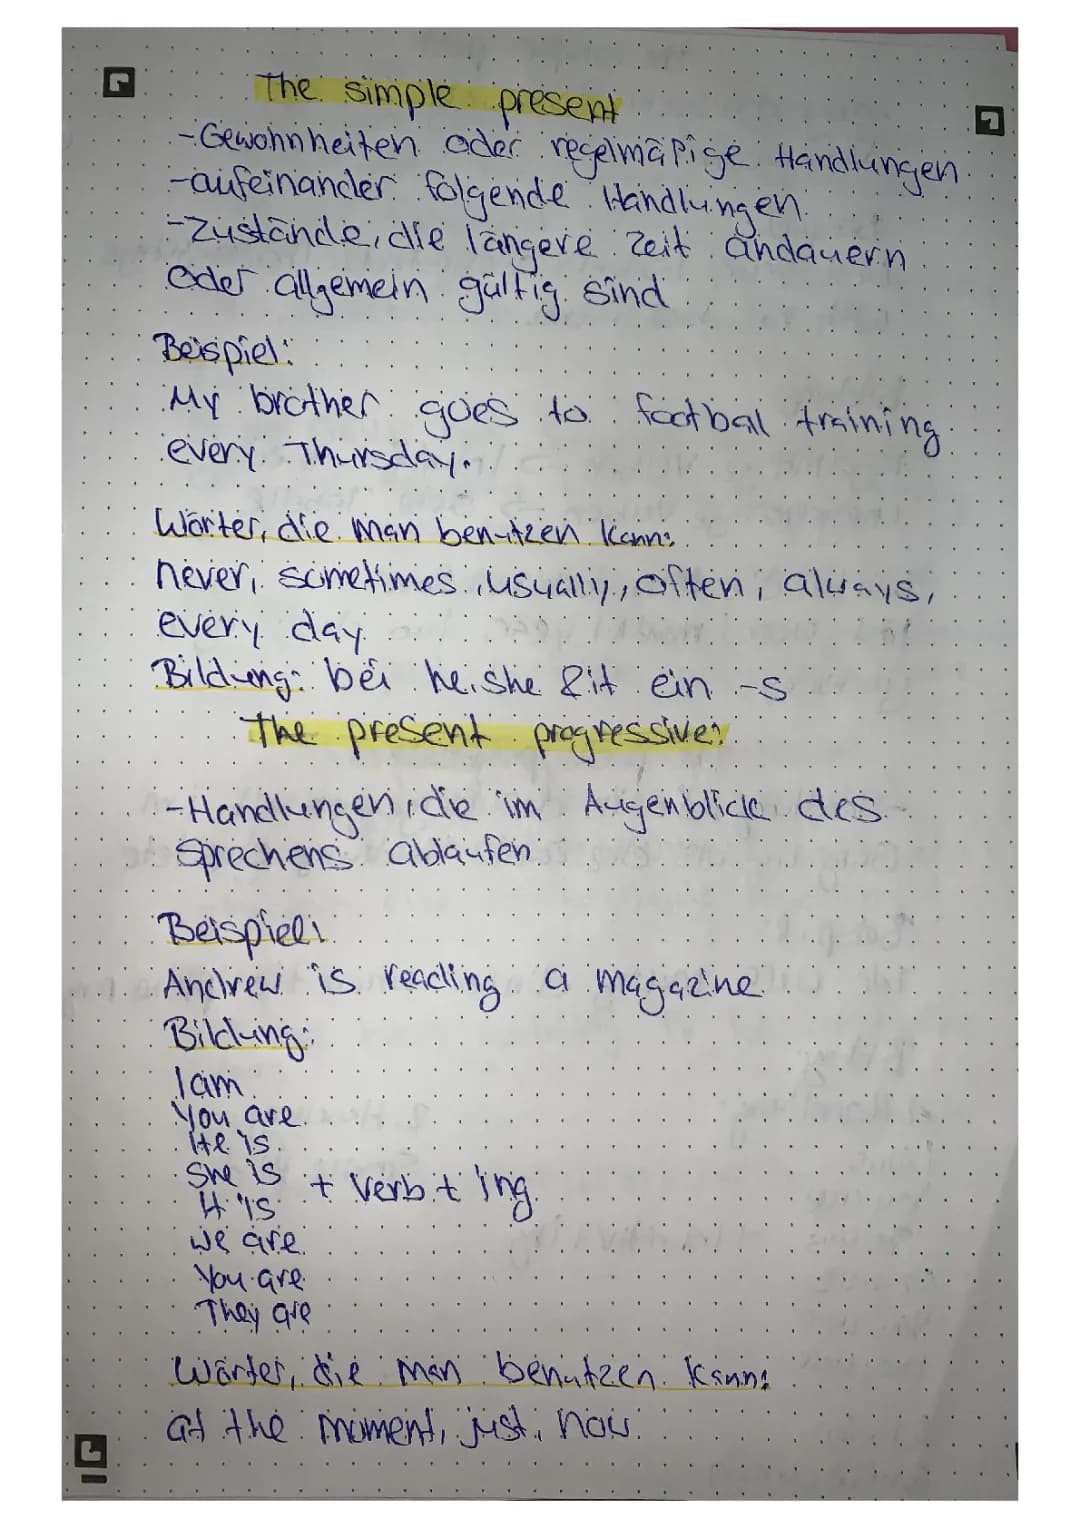 The simple present
-Gewohnheiten oder regelmäßige Handlungen
-aufeinander folgende Handlungen
-Zustände, die längere Zeit andauern
oder allgemein gültig sind
Beispiel:
My brother goes to footbal training
every Thursday.
Wörter, die man benutzen kann:
never, sometimes, usually, often, always,
every day
Bildung: bei he, she & it ein -s
The present progressive:
-Handlungen, die im Augenblick des
Sprechens ablaufen
Beispiel:
Andrew is reading a magazine
Bildung:
I am
You are
He is
She is
It is
+ Verb + ing
we are
You are
They are
Wörter, die man benutzen kann:
at the moment, just, now